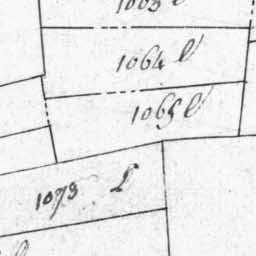 1063 l
1064 l
1065 l
1073 L